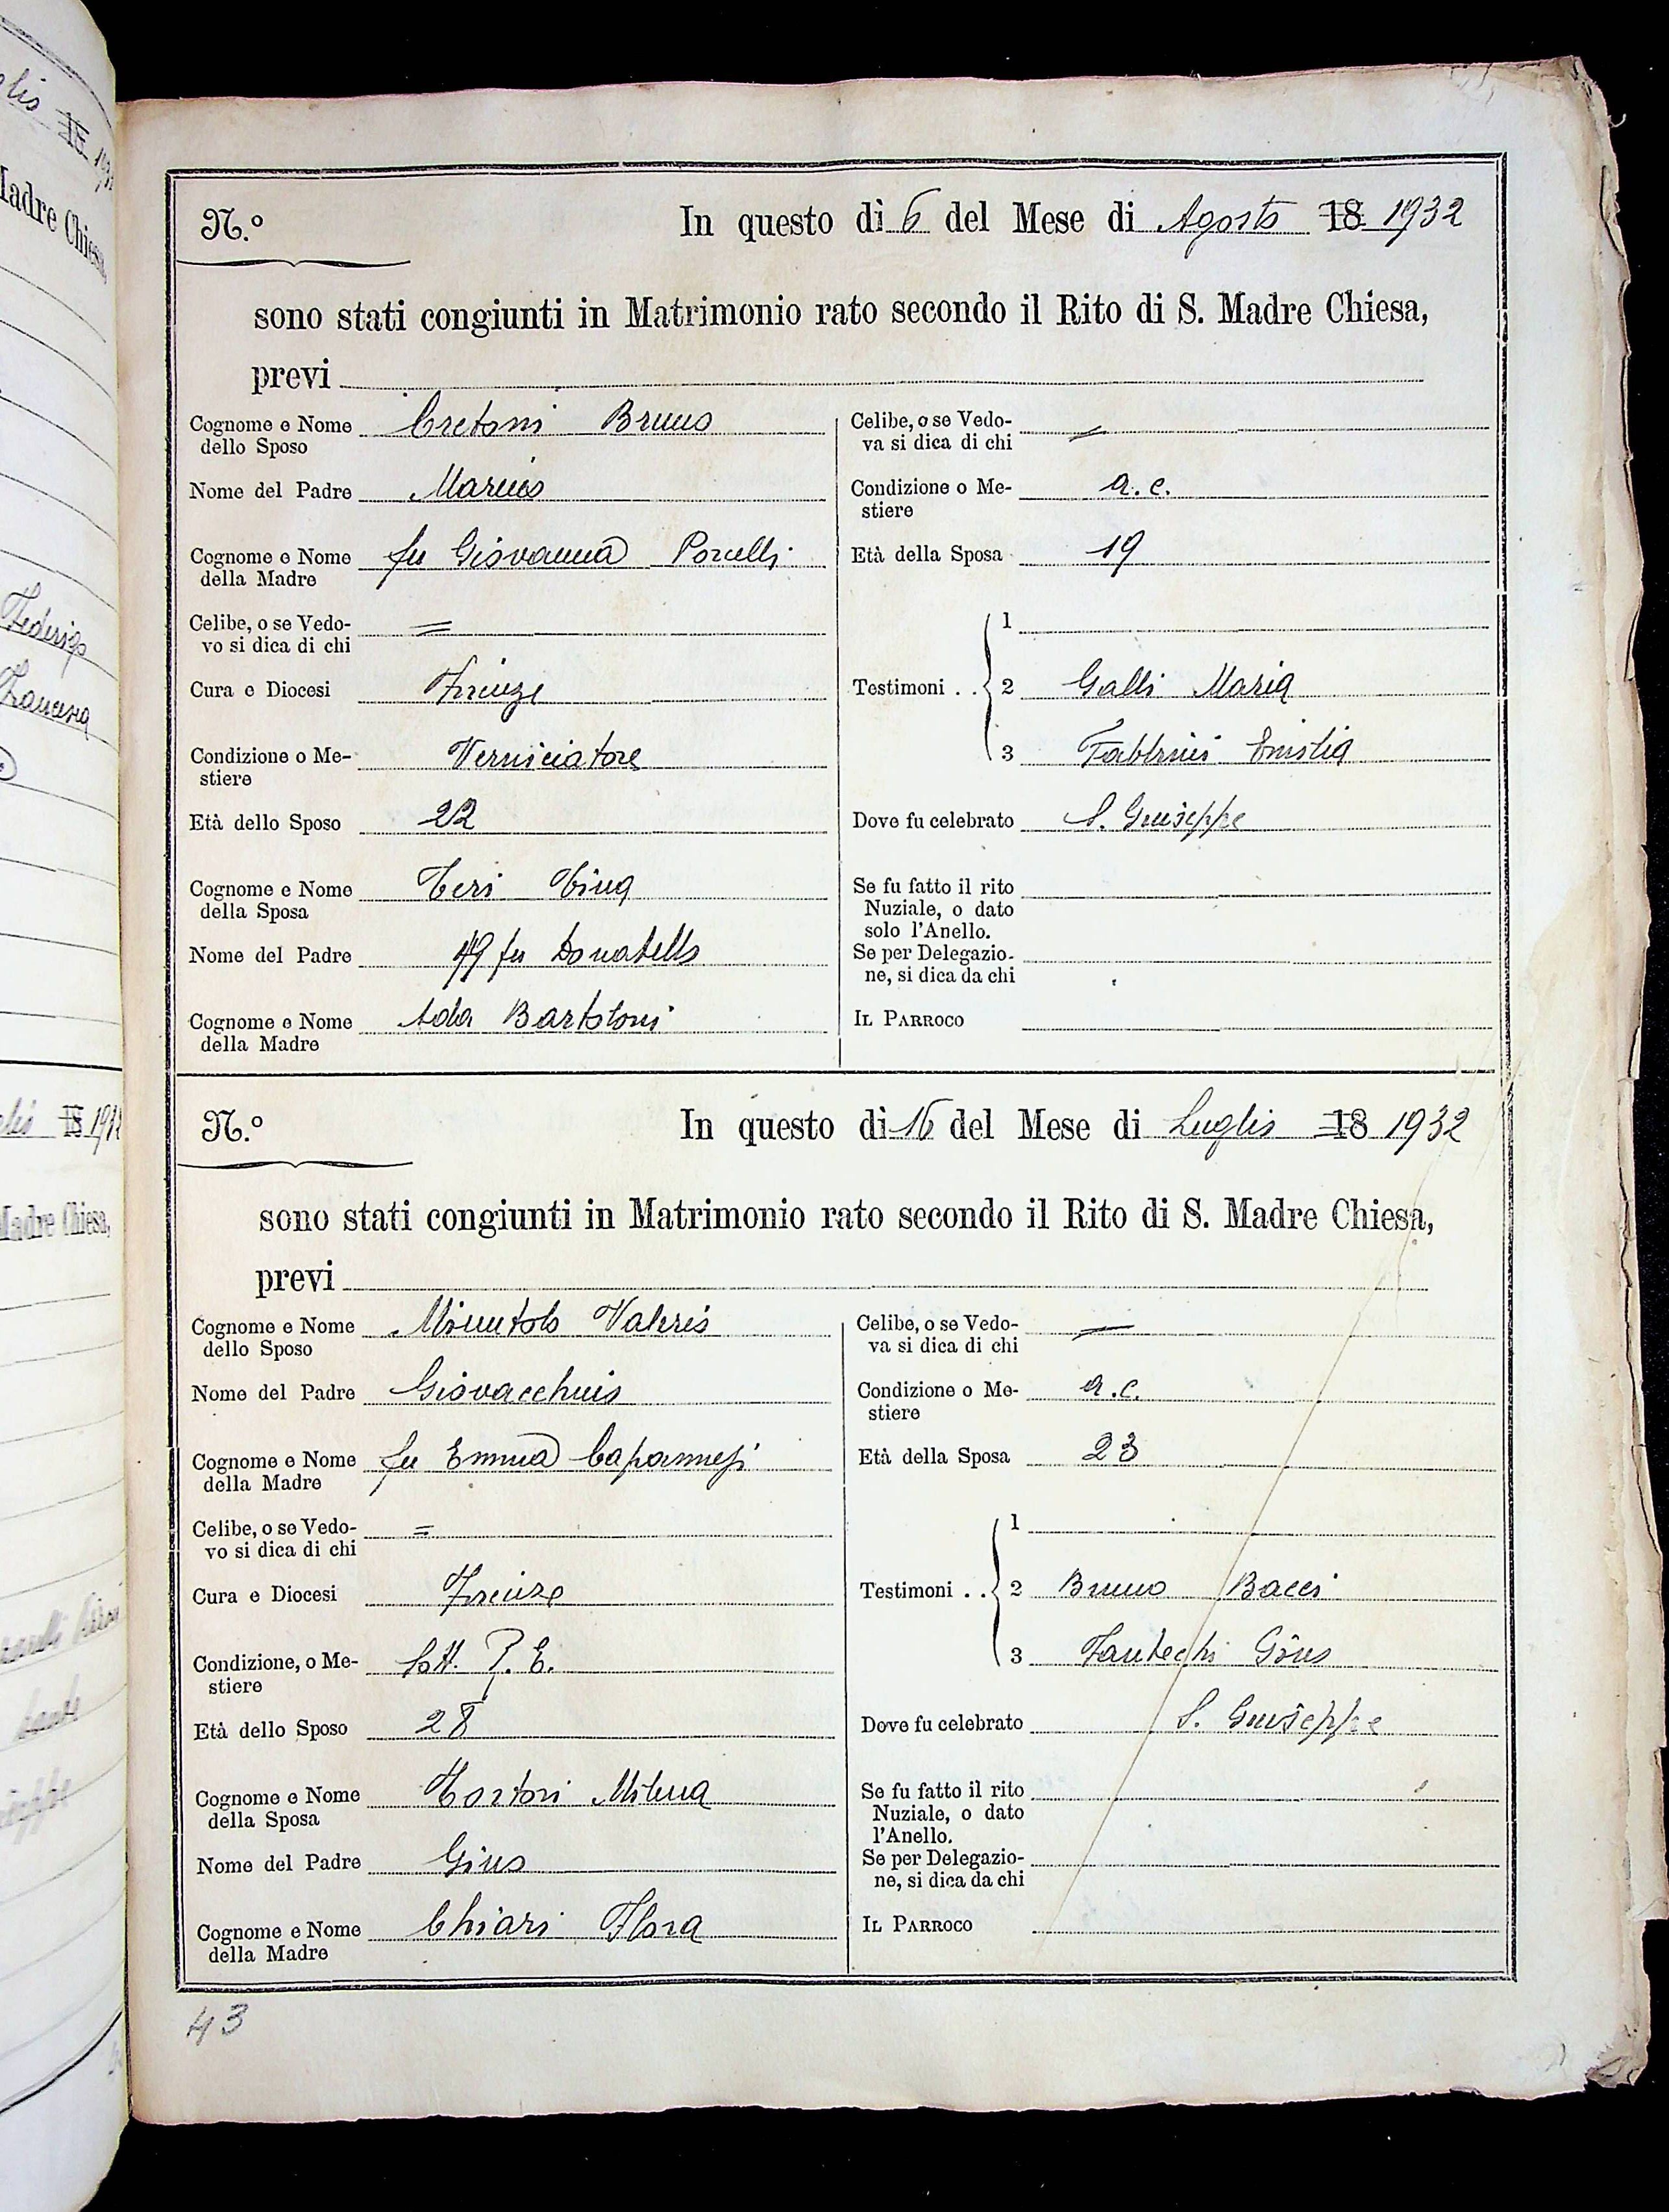 N.º
In questo dì 6 del Mese di Agosto 18 1932
sono stati congiunti in Matrimonio rato secondo il Rito di S. Madre Chiesa,
previ
Cognome e Nome dello Sposo Cretoni Bruno
Nome del Padre Mario
Cognome e Nome della Madre fu Giovanna Porcelli
Celibe, o se Vedovo si dica di chi =
Cura e Diocesi Firenze
Condizione o Mestiere Verniciatore
Età dello Sposo 22
Cognome e Nome della Sposa Teri Tina
Nome del Padre fu Donatello
Cognome e Nome della Madre Ada Bartoloni
Celibe, o se Vedova si dica di chi =
Condizione o Mestiere a. c.
Età della Sposa 19
Testimoni . . 1
2 Galli Maria
3 Fabbrini Emilia
Dove fu celebrato S. Giuseppe
Se fu fatto il rito Nuziale, o dato solo l'Anello.
Se per Delegazione, si dica da chi
IL PARROCO
N.º
In questo dì 16 del Mese di Luglio 18 1932
sono stati congiunti in Matrimonio rato secondo il Rito di S. Madre Chiesa,
previ
Cognome e Nome dello Sposo Minutolo Valerio
Nome del Padre Giovacchino
Cognome e Nome della Madre fu Emma Capannesi
Celibe, o se Vedovo si dica di chi =
Cura e Diocesi Firenze
Condizione, o Mestiere
Età dello Sposo 28
Cognome e Nome della Sposa Tortori Milena
Nome del Padre Gino
Cognome e Nome della Madre Chiari Flora
Celibe, o se Vedova si dica di chi =
Condizione o Mestiere a. c.
Età della Sposa 23
Testimoni . . 1
2 Bruno Bacci
3 Fantechi Gino
Dove fu celebrato S. Giuseppe
Se fu fatto il rito Nuziale, o dato l'Anello.
Se per Delegazione, si dica da chi
IL PARROCO
43